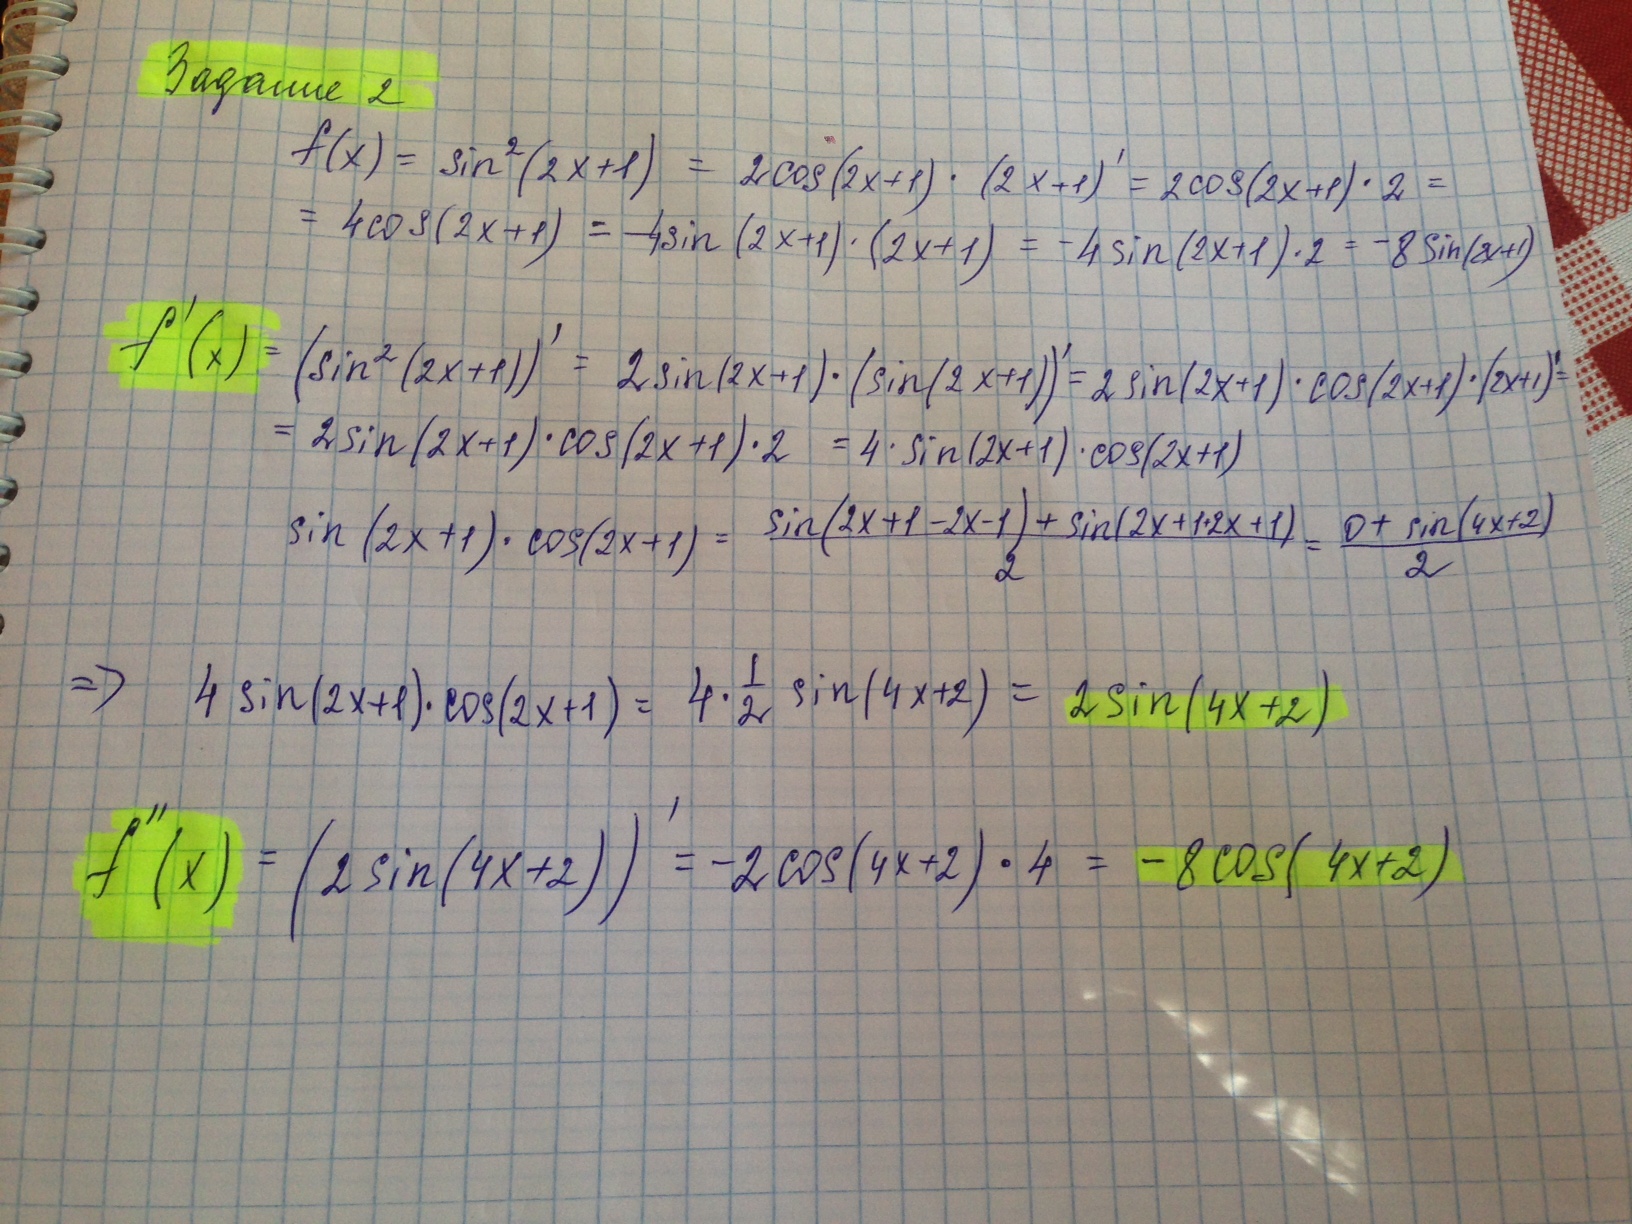 Задание 2
f(x) = sin²(2x+1) = 2cos(2x+1)·(2x+1)' = 2cos(2x+1)·2 =
= 4cos(2x+1) = -4sin(2x+1)·(2x+1) = -4sin(2x+1)·2 = -8sin(2x+1)
f'(x) = (sin²(2x+1))' = 2sin(2x+1)·(sin(2x+1))' = 2sin(2x+1)·cos(2x+1)·(2x+1)' =
= 2sin(2x+1)·cos(2x+1)·2 = 4·sin(2x+1)·cos(2x+1)
sin(2x+1)·cos(2x+1) = (sin(2x+1-2x-1) + sin(2x+1+2x+1))/2 = (0+sin(4x+2))/2
=> 4sin(2x+1)·cos(2x+1) = 4·1/2 sin(4x+2) = 2sin(4x+2)
f''(x) = (2sin(4x+2))' = -2cos(4x+2)·4 = -8cos(4x+2)